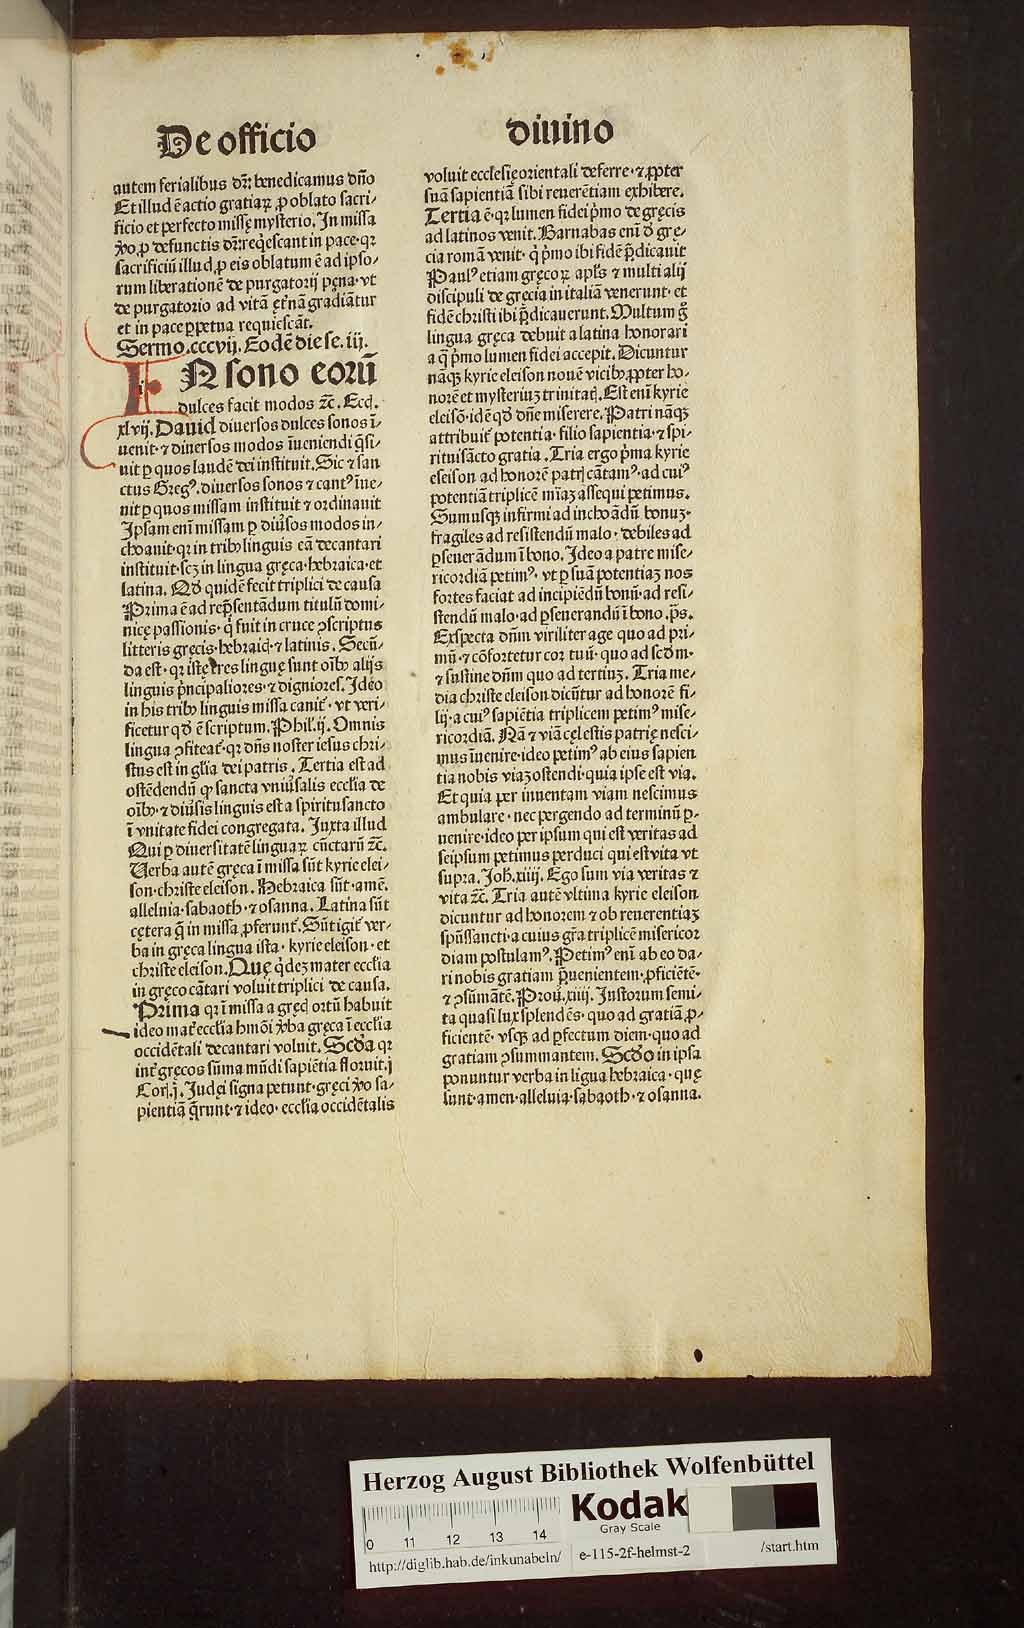 De officio
autem ferialibus dr̄: benedicamus dn̄o
Et illud ē actio gratiaꝝ ꝓ oblato sacri-
ficio et perfecto missę mysterio. In missa
v̓o ꝓ defunctis dr̄: req̇escant in pace· qꝛ
sacrificiū illud ꝓ eis oblatum ē ad ipso-
rum liberationē de purgatorij pęna· vt
de purgatorio ad vitā ęt̓nā gradiātur
et in pace ꝑpetua requiescāt.
Sermo.cccvij. Eodē die se. iij.
IN sono eorū
dulces facit modos ⁊c̄. Eccͥ.
xlvij. Dauid diuersos dulces sonos ī-
uenit· ⁊ diuersos modos īueniendi q̄si-
uit ꝑ quos laudē dei instituit. Sic ⁊ san
ctus Gregꝰ. diuersos sonos ⁊ cantꝰ īue-
nit ꝑ quos missam instituit ⁊ ordinauit
Ipsam eni missam ꝑ diu̓sos modos in-
choauit· qꝛ in tribꝫ linguis eā decantari
instituit· scꝫ in lingua gręca· hebraica· et
latina. Qd̓ quidē fecit triplici de causa
Prima ē ad rep̄sentādum titulū domi-
nicę passionis· q̇ fuit in cruce ꝯscriptus
litteris gręcis· hebraicͥ· ⁊ latinis. Secū-
da est· qꝛ istę tres linguę sunt oībꝫ alijs
linguis pͥncipaliores· ⁊ digniores. Ideo
in his tribꝫ linguis missa canit̓· vt veri-
ficetur qd̓ ē scriptum. Phil̓.ij. Omnis
lingua ꝯfiteat̓· qꝛ dn̄s noster iesus chri-
stus est in gl̓ia dei patris. Tertia est ad
ostēdendū ꝙ sancta vniu̓salis eccl̓ia de
oībꝫ· ⁊ diu̓sis linguis est a spiritusancto
ī vnitate fidei congregata. Iuxta illud
Qui ꝑ diuersitatē linguaꝝ cūctarū ⁊c̄.
Verba autē gręca ī missa sūt kyrie elei-
son· christe eleison. Hebraica sūt· amē.
alleluia· sabaoth· ⁊ osanna. Latina sūt
cętera q̄ in missa ꝓferunt̓. Sūt igit̓ ver-
ba in gręca lingua ista· kyrie eleison· et
christe eleison. Quę q̇dē mater eccl̓ia
in gręco cātari voluit triplici de causa.
Prima qꝛ ī missa a gręcͥ ortū habuit
ideo mat̓ eccl̓ia hmōi v̓ba gręca ī eccl̓ia
occidētali decantari voluit. Scd̓a qꝛ
int̓ gręcos sūma mūdi sapiētia floruit.j
Corͥ.j. Iudęi signa petunt· gręci v̓o sa-
pientiā q̄runt· ⁊ ideo· eccl̓ia occidētalis
diuino
voluit ecclesię orientali deferre· ⁊ ꝓpter
suā sapientiā sibi reuerētiam exhibere.
Tertia ē· qꝛ lumen fidei pͥmo de gręcis
ad latinos venit. Barnabas enī d̓ grę-
cia romā venit· q̇ pͥmo ibi fidē p̄dicauit
Paulꝰ etiam gręcoꝝ apl̓s ⁊ multi alij
discipuli de gręcia in italiā venerunt· et
fidē christi ibi p̄dicauerunt. Multum g̓
lingua gręca debuit a latina honorari
a q̄ pͥmo lumen fidei accepit. Dicuntur
nāqꝫ kyrie eleison nouē vicibꝫ ꝓpter ho-
norē et mysteriuꝫ trinitatͥ. Est enī kyrie
eleisō· idē qd̓ dn̄e miserere. Patri nāqꝫ
attribuit̓ potentia· filio sapientia· ⁊ spi-
rituisācto gratia. Tria ergo pͥma kyrie
eleison ad honorē patrͥ cātamꝰ· ad cuiꝰ
potentiā triplicē mīaꝫ assequi petimus.
Sumusqꝫ infirmi ad inchoādū bonuꝫ·
fragiles ad resistendū malo· debiles ad
ꝑseuerādum ī bono. Ideo a patre mise-
ricordiā petimꝰ· vt ꝑ suā potentiaꝫ nos
fortes faciat ad incipiēdū bonū· ad resi-
stendū malo· ad ꝑseuerandū ī bono. ps̄.
Exspecta dn̄m viriliter age quo ad pri-
mū· ⁊ cōfortetur cor tuū· quo ad scd̓m·
⁊ sustine dn̄m quo ad tertiuꝫ. Tria me-
dia christe eleison dicūtur ad honorē fi-
lij· a cuiꝰ sapiētia triplicem petimꝰ mise-
ricordiā. Nā ⁊ viā cęlestis patrię nesci-
mus īuenire· ideo petimꝰ ab eius sapien
tia nobis viaꝫ ostendi· quia ipse est via.
Et quia per inuentam viam nescimus
ambulare· nec pergendo ad terminū ꝑ-
uenire· ideo per ipsum qui est veritas ad
seipsum petimus perduci qui est vita vt
supra. Ioh. xiiij. Ego sum via veritas ⁊
vita ⁊c̄. Tria autē vltima kyrie eleison
dicuntur ad honorem ⁊ ob reuerentiaꝫ
spūssancti· a cuius gr̄a triplicē misericor
diam postulamꝰ. Petimꝰ enī ab eo da-
ri nobis gratiam p̄uenientem· ꝓficiētē·
⁊ ꝯsūmātē. Prou̓. iiij. Iustorum semi-
ta quasi lux splendēs· quo ad gratiā ꝓ-
ficientē· vsqꝫ ad ꝑfectum diem· quo ad
gratiam ꝯsummantem. Scd̓o in ipsa
ponuntur verba in ligua hebraica· quę
sunt· amen· alleluia· sabaoth· ⁊ osanna.
Herzog August Bibliothek Wolfenbüttel
Kodak
Gray Scale
0 11 12 13 14
http://diglib.hab.de/inkunabeln/
e-115-2f-helmst-2
/start.htm